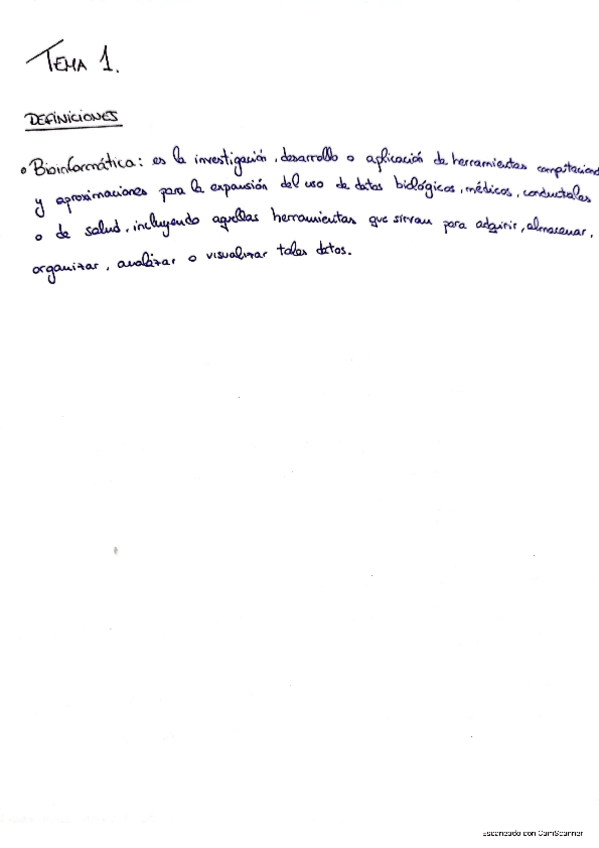 TEMA 1.
DEFINICIONES
• Bioinformática: es la investigación, desarrollo o aplicación de herramientas computaciona
y aproximaciones para la expansión del uso de datos biológicos, médicos, conductales
o de salud, incluyendo aquellas herramientas que sirvan para adquirir, almacenar,
organizar, analizar o visualizar tales datos.
Escaneado con CamScanner